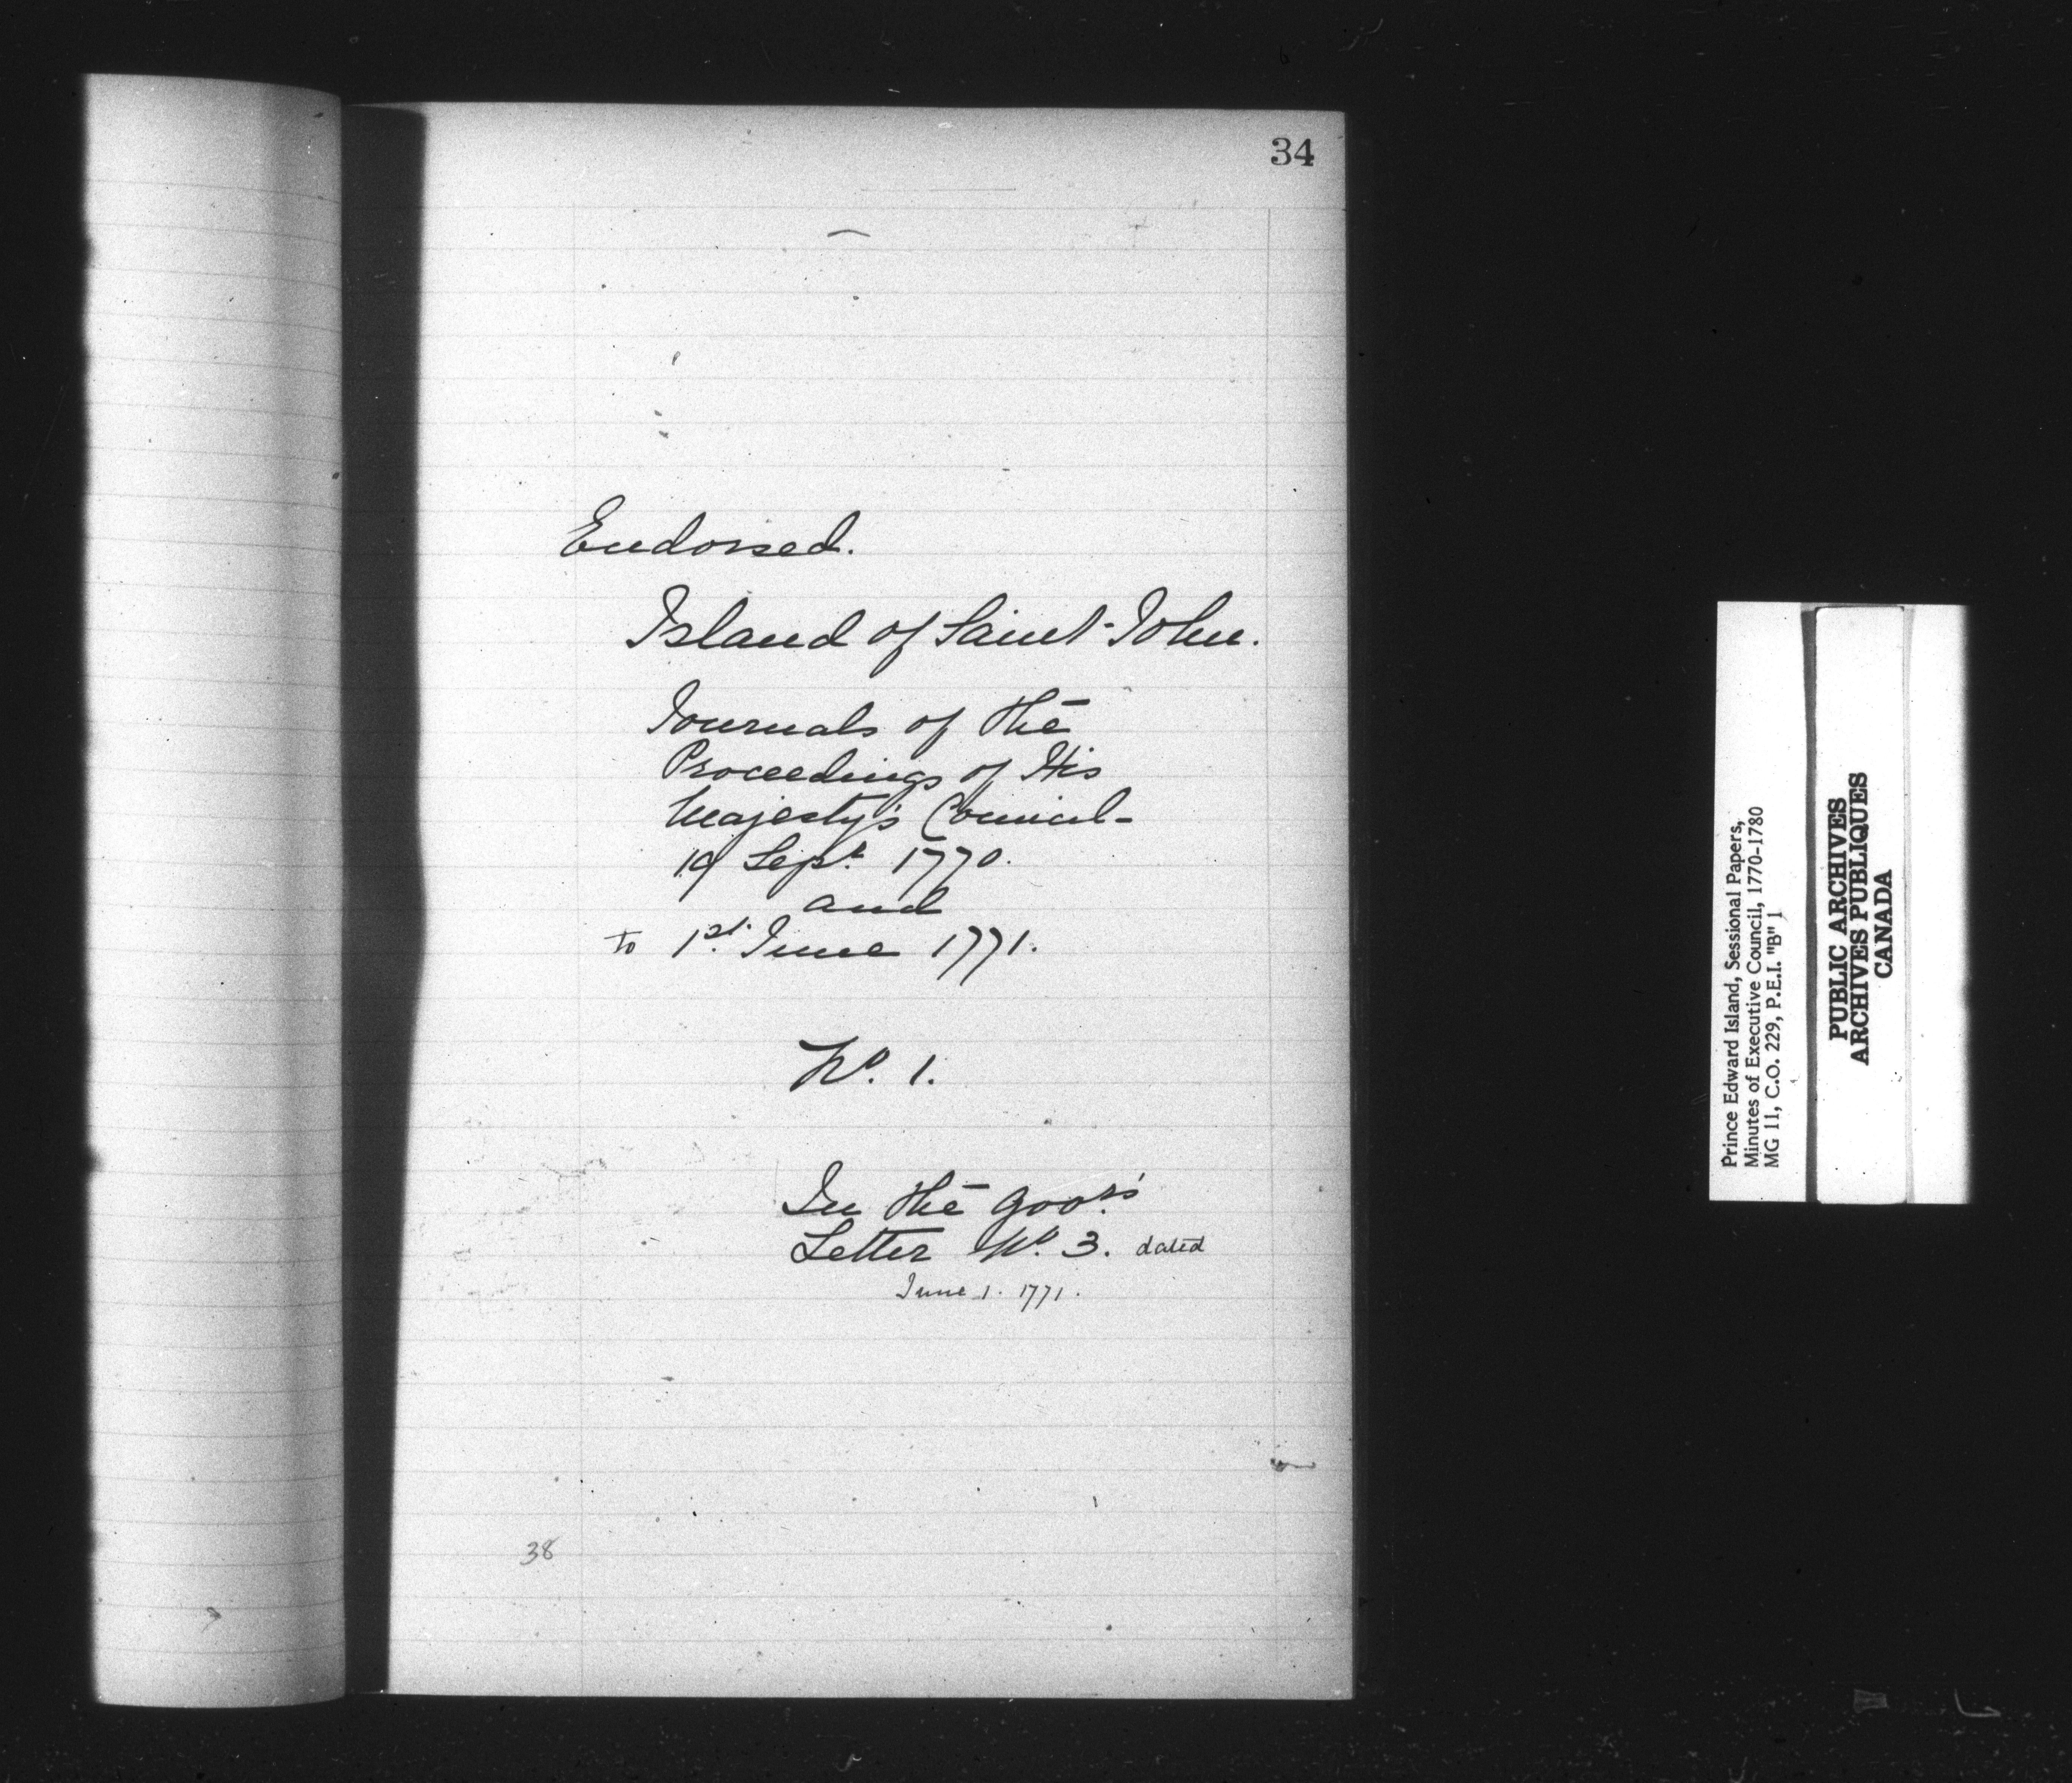 34
Endorsed.
Island of Saint John.
Journals of the
Proceedings of His
Majesty's Council-
19 Sept. 1770.
and
to 1st. June 1771.
No. 1.
In the Govrs'
Letter No. 3. dated
June 1. 1771.
38
Prince Edward Island, Sessional Papers,
Minutes of Executive Council, 1770-1780
MG 11, C.O. 229, P.E.I. "B" 1
PUBLIC ARCHIVES
ARCHIVES PUBLIQUES
CANADA